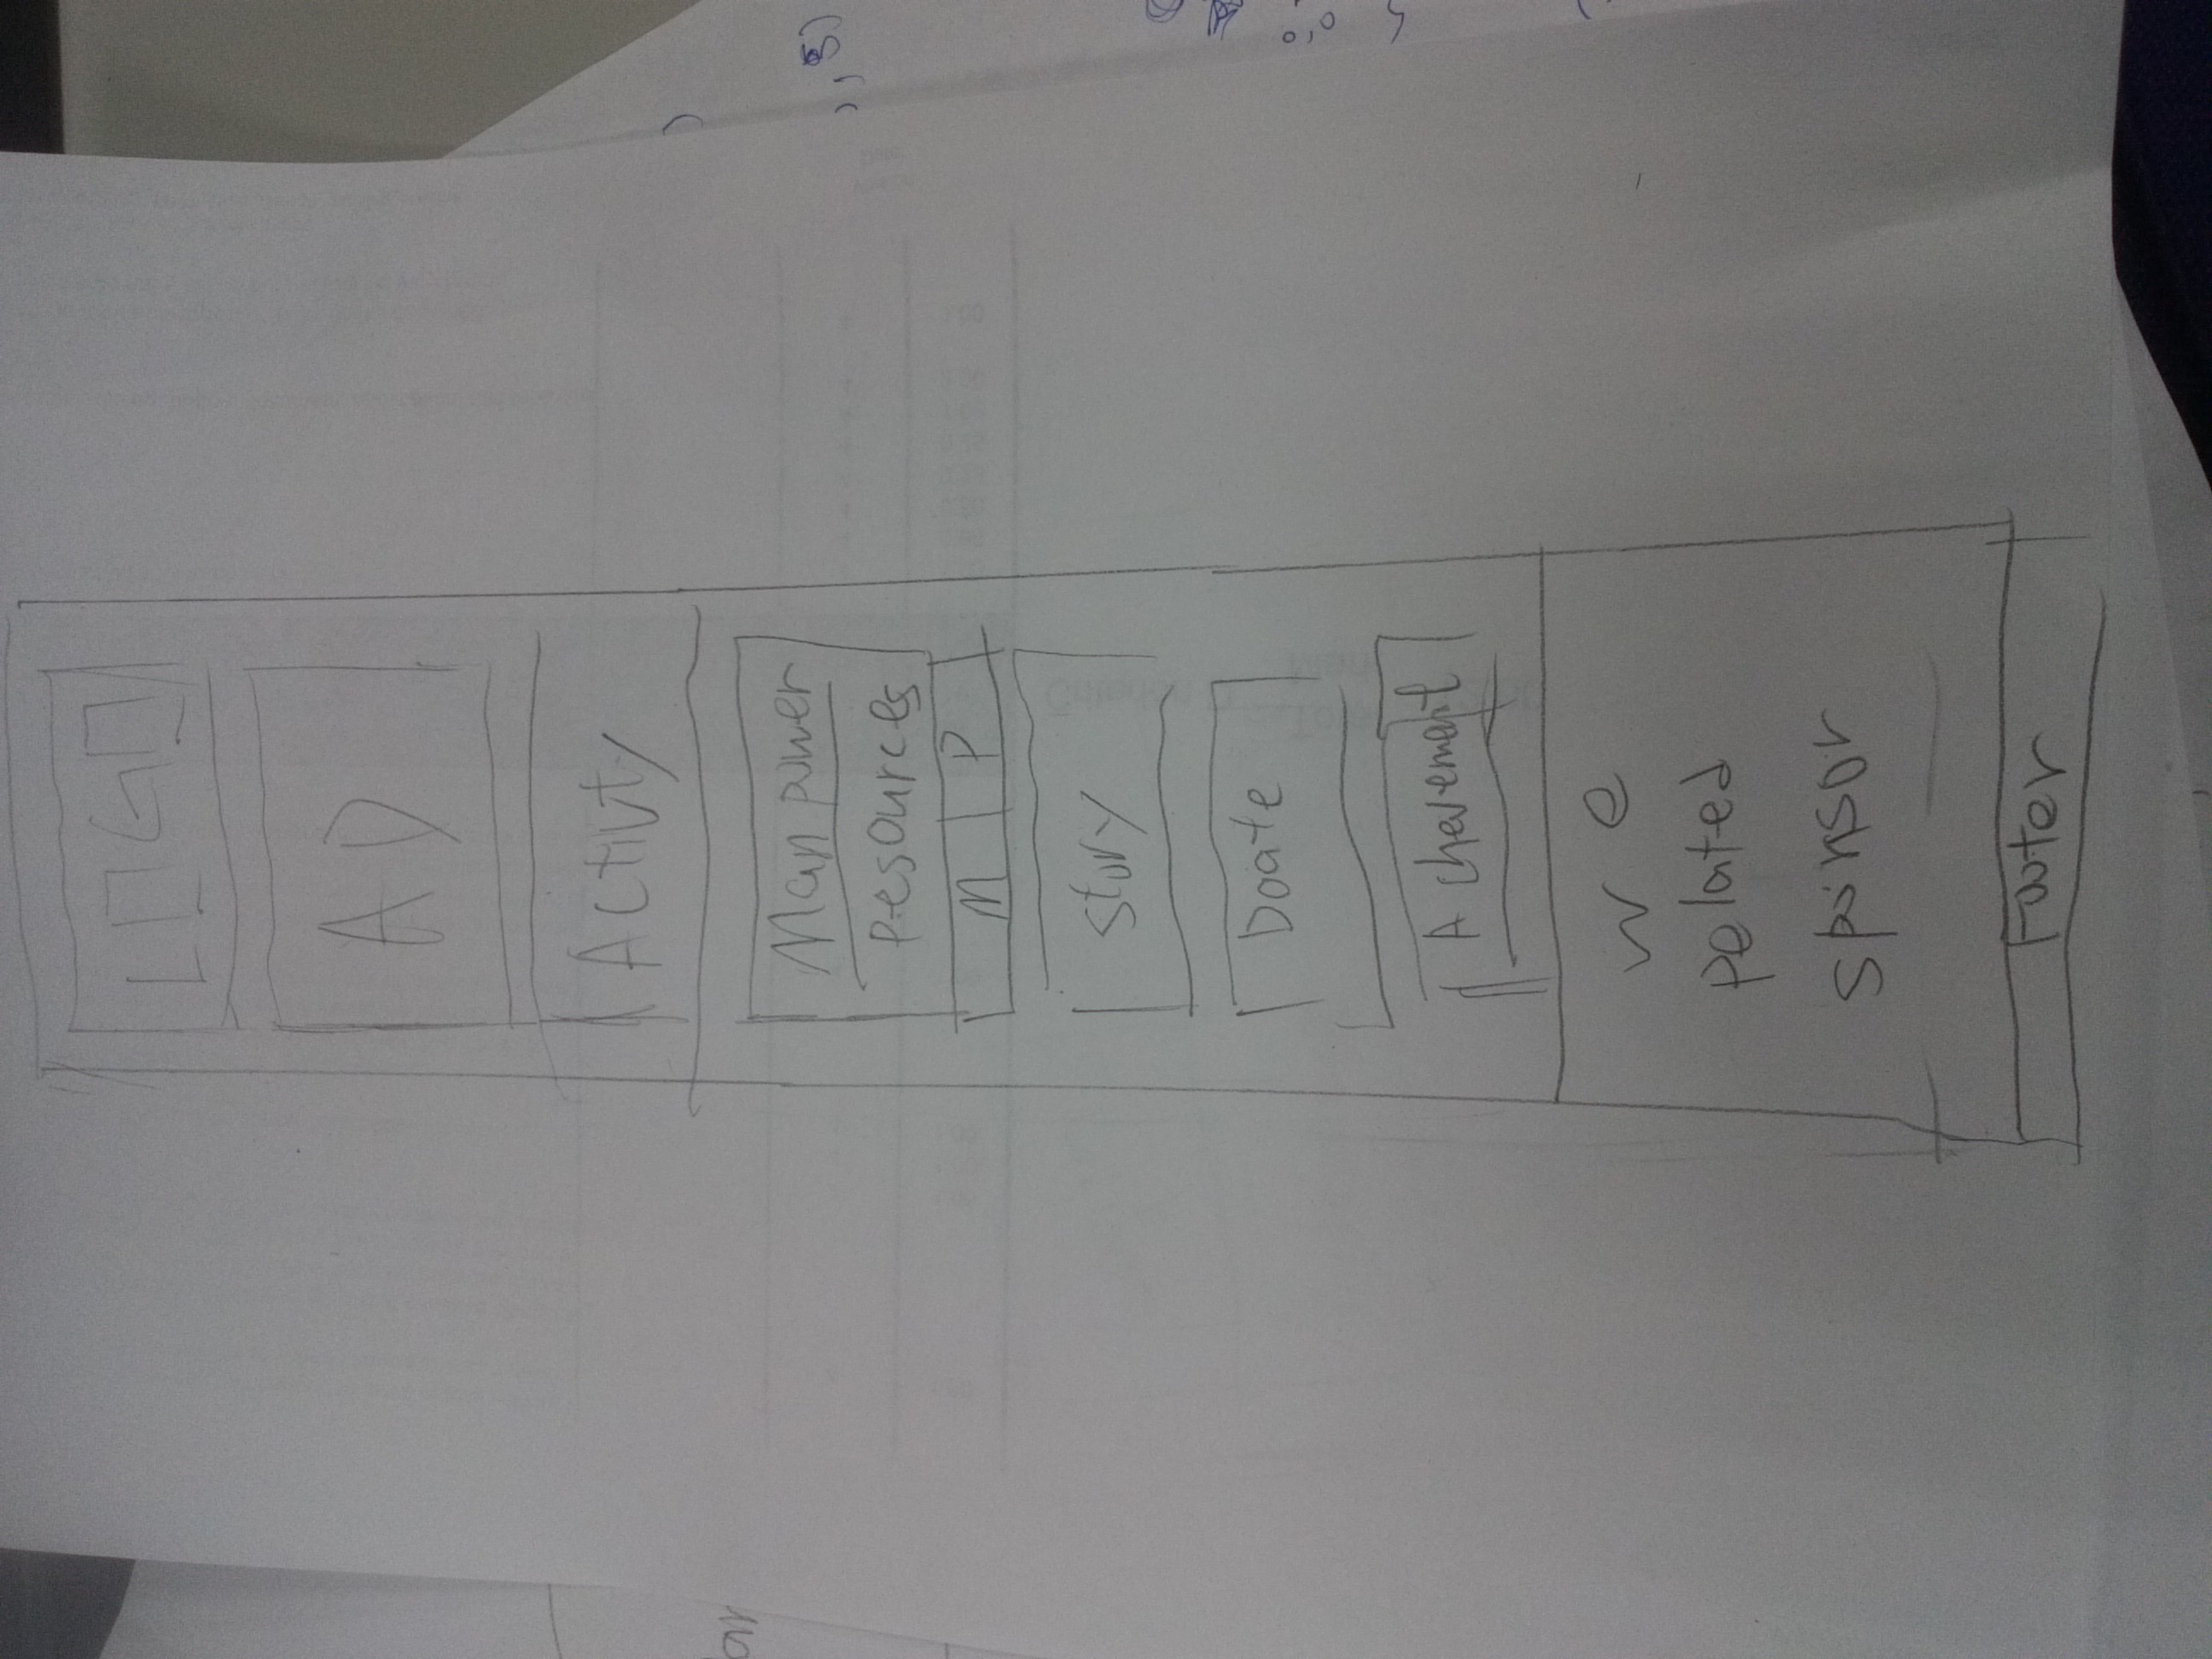 LOGO
AD
Activty
Man power
Resources
M R
story
Doate
Achevement
we
Related
sponsor
Footer
ar
, , 5)